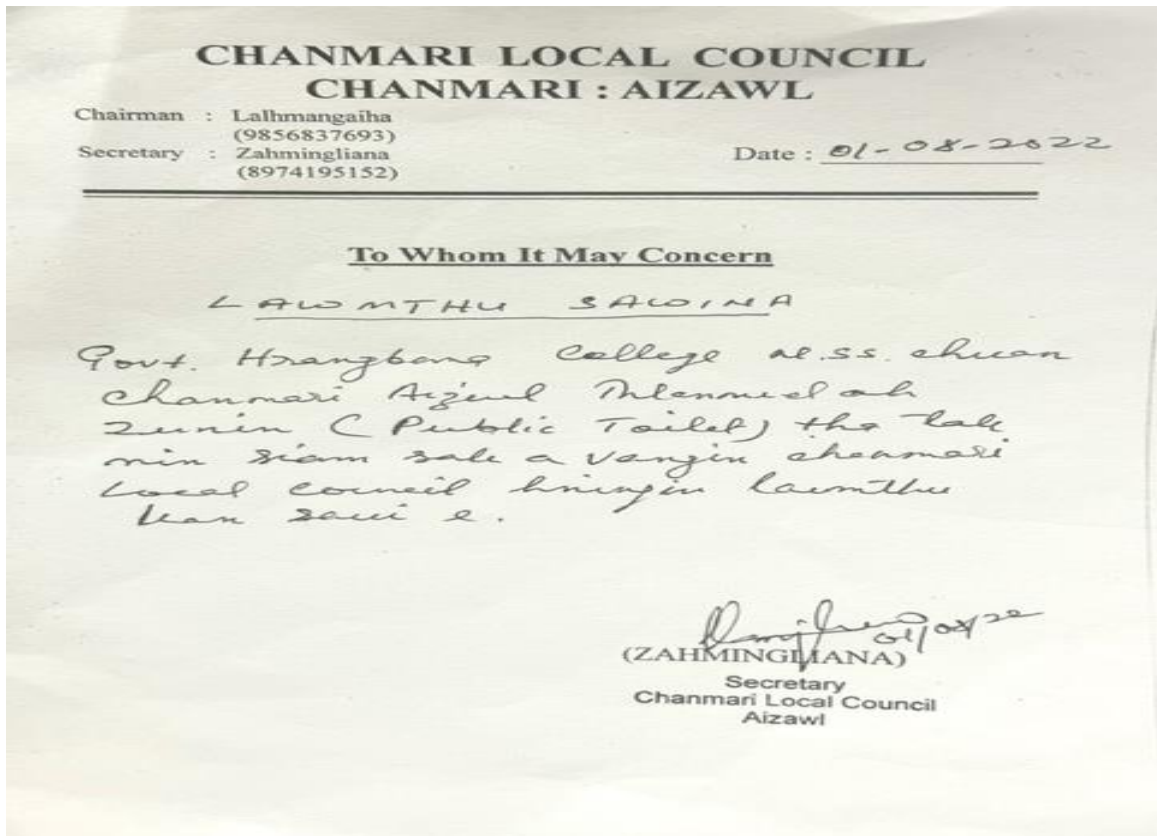 CHANMARI LOCAL COUNCIL
CHANMARI : AIZAWL
Chairman : Lalhmangaiha
(9856837693)
Secretary : Zahmingliana
(8974195152)
Date : 01-08-2022
To Whom It May Concern
LAWMTHU SAWINA
Govt. Hrangbana College N.SS. chuan
Chanmari Aizawl Thlanmual ah
Zunin (Public Toilet) tha tak
min siam sak a vangin chanmari
Local council hmingin lawmthu
kan sawi e.
01/08/22
(ZAHMINGLIANA)
Secretary
Chanmari Local Council
Aizawl